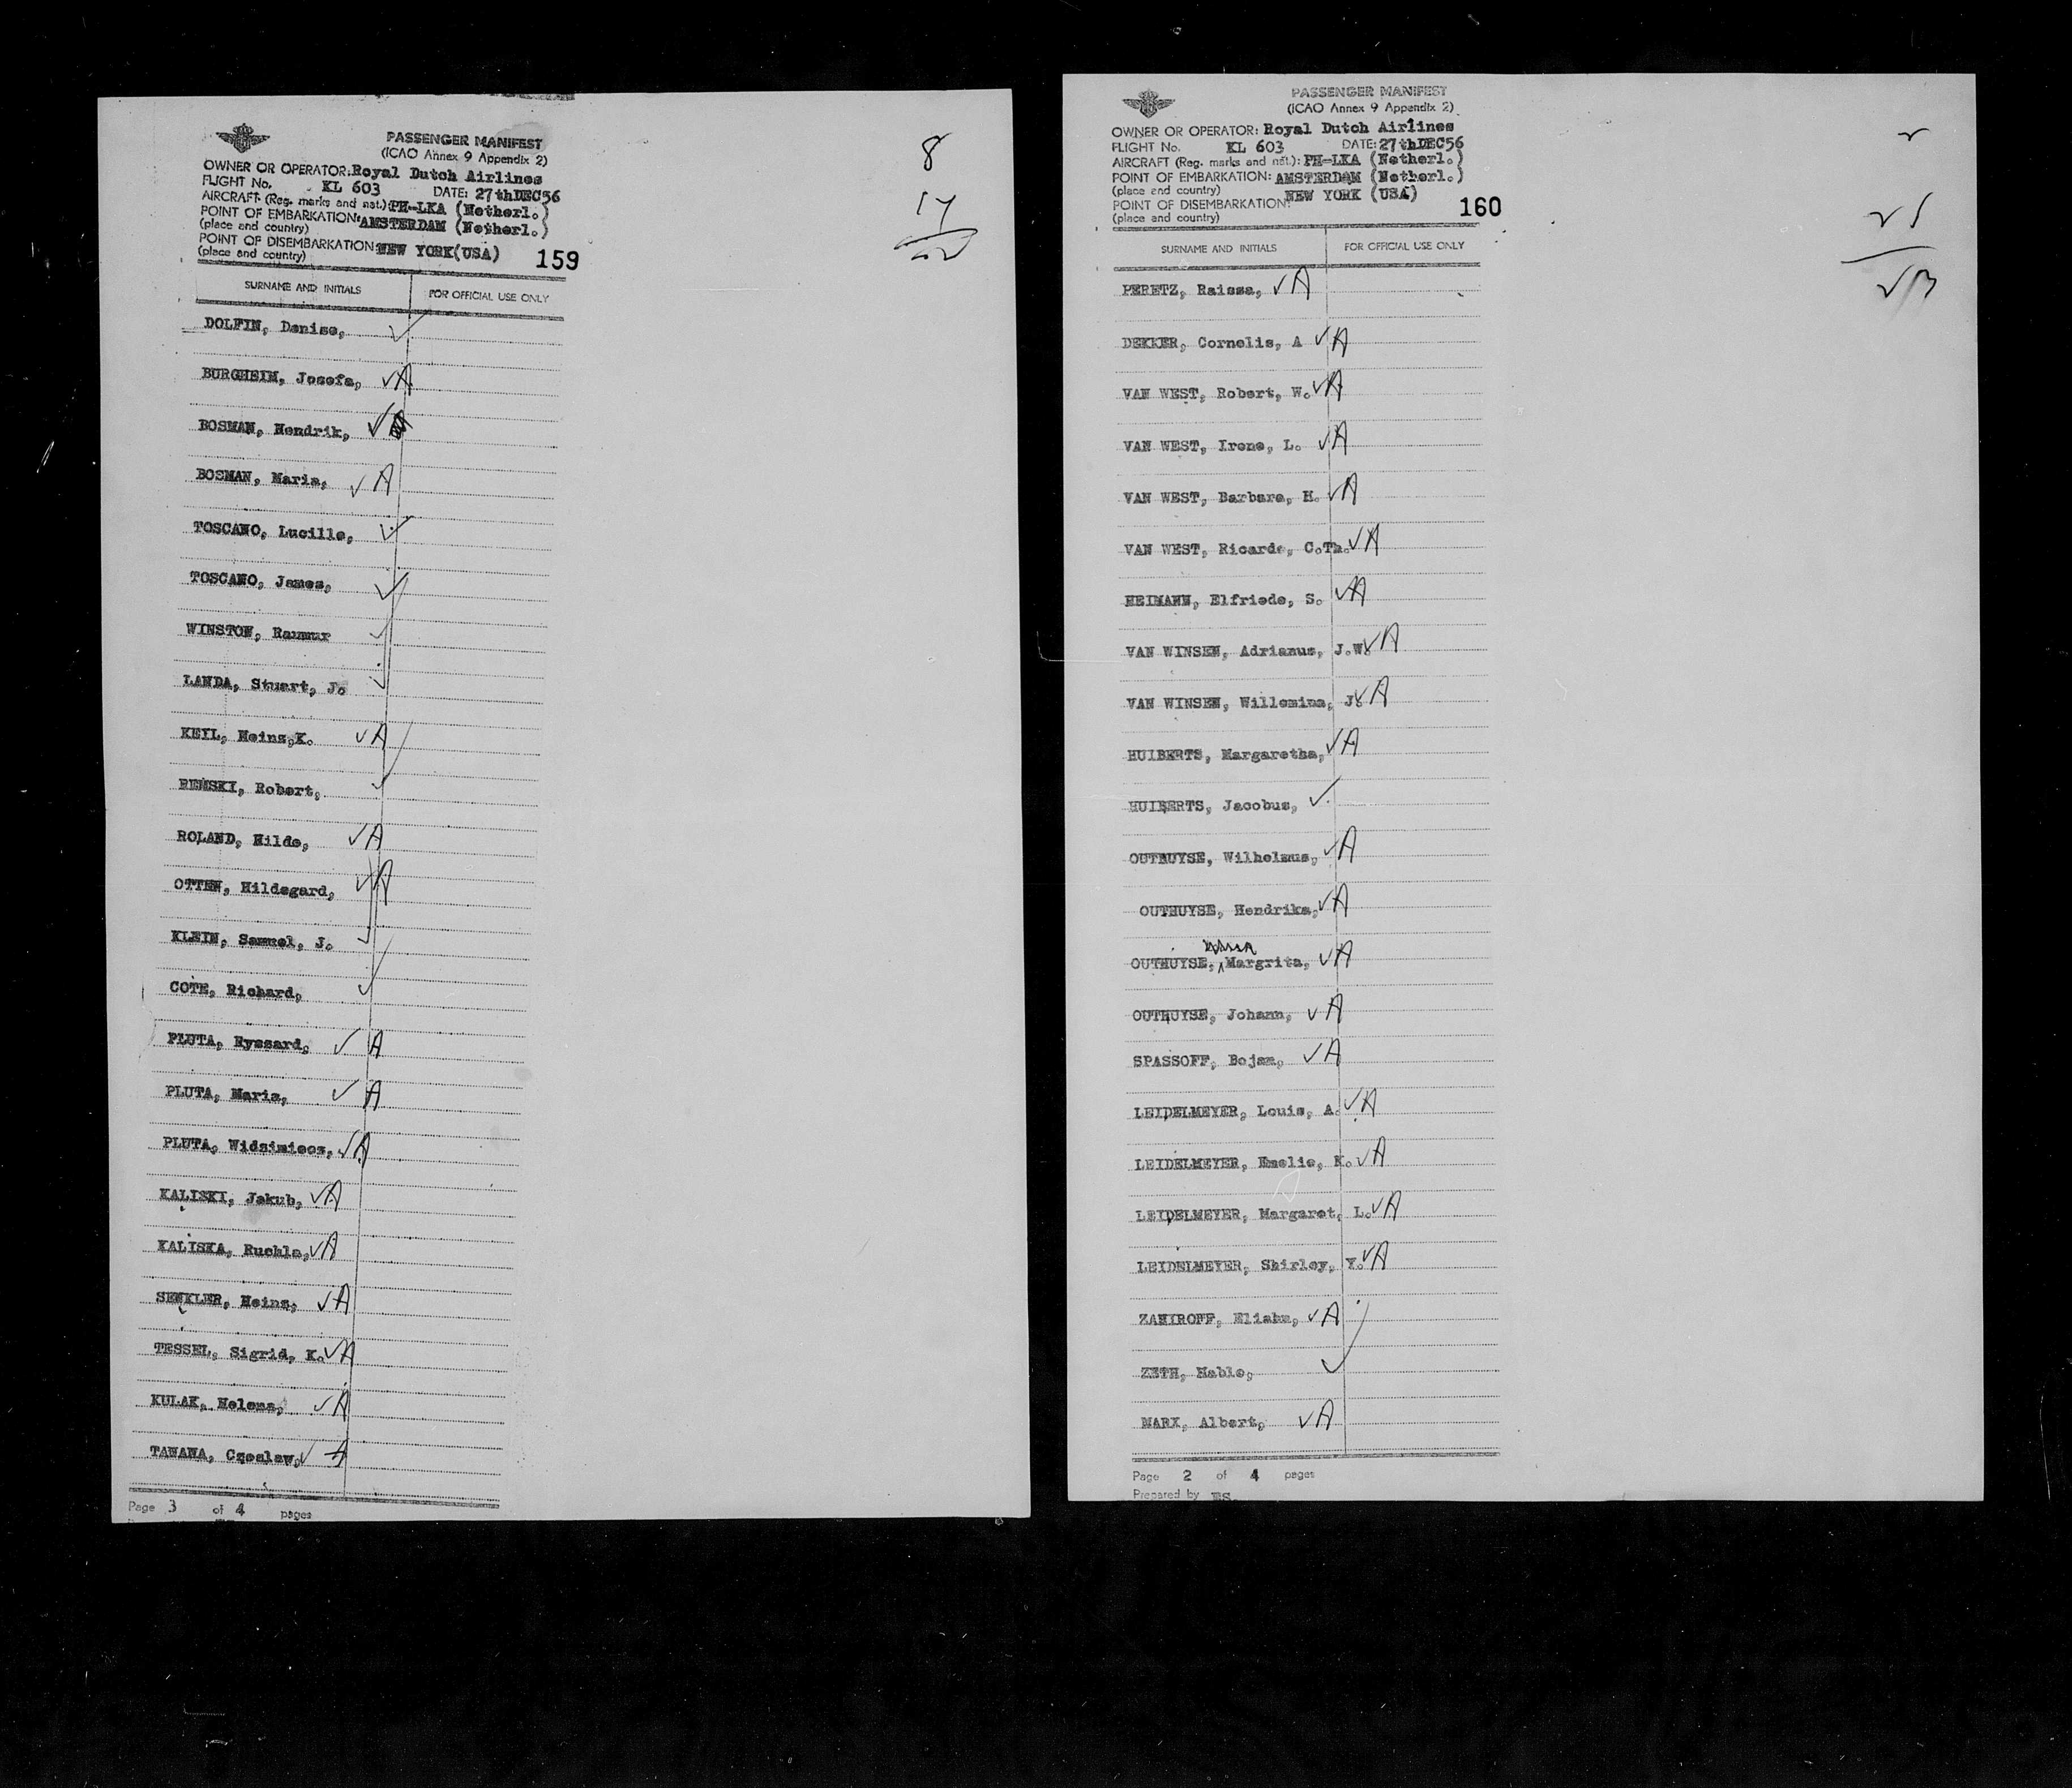 PASSENGER MANIFEST
(ICAO Annex 9 Appendix 2)
OWNER OR OPERATOR: Royal Dutch Airlines
FLIGHT No. KL 603 DATE: 27thDEC56
AIRCRAFT (Reg. marks and nat.) PH-LKA (Netherl.)
POINT OF EMBARKATION: AMSTERDAM (Netherl.)
(place and country)
POINT OF DISEMBARKATION: NEW YORK(USA) 159
(place and country)
8
17
SURNAME AND INITIALS FOR OFFICIAL USE ONLY
DOLFIN, Denise, ✓
BURGHEIM, Josefa, ✓A
BOSMAN, Hendrik, ✓
BOSMAN, Maria, ✓ A
TOSCANO, Lucille, ✓
TOSCANO, James, ✓
WINSTON, ✓
LANDA, Stuart, J. ✓
KEYL, Heinz,K. ✓A
REMSKI, Robert, ✓
ROLAND, Hilde, ✓A
OTTEN, Hildegard, ✓A
KLEIN, Samuel, J. ✓
COTE, Richard, ✓
PLUTA, Ryszard, ✓ A
PLUTA, Maria, ✓ A
PLUTA, ✓A
KALISKI, Jakub, ✓A
KALISKA, Ruchla, ✓A
SENKLER, Heinz, ✓A
TESSEL, Sigrid, K. ✓A
KULAK, Helena, ✓A
TAWANA, Czeslaw, ✓ A
Page 3 of 4 pages
PASSENGER MANIFEST
(ICAO Annex 9 Appendix 2)
OWNER OR OPERATOR: Royal Dutch Airlines
FLIGHT No. KL 603 DATE: 27thDEC56
AIRCRAFT (Reg. marks and nat.): PH-LKA (Netherl.)
POINT OF EMBARKATION: AMSTERDAM (Netherl.)
(place and country)
POINT OF DISEMBARKATION: NEW YORK (USA) 160
(place and country)
2
21
23
SURNAME AND INITIALS FOR OFFICIAL USE ONLY
PERETZ, Raissa, ✓A
DEKKER, Cornelis, A ✓A
VAN WEST, Robert, W. ✓A
VAN WEST, Irene, L. ✓A
VAN WEST, Barbara, H. ✓A
VAN WEST, Ricardo, C.Th. ✓A
HEIMANN, Elfriede, S. ✓A
VAN WINSEN, Adrianus, J.W. ✓A
VAN WINSEN, Willemina, J. ✓A
HUIBERTS, Margaretha, ✓A
HUIBERTS, Jacobus, ✓
OUTHUYSE, Wilhelmus, ✓A
OUTHUYSE, Hendrika, ✓A
OUTHUYSE, Margrita, ✓A
OUTHUYSE, Johann, ✓A
SPASSOFF, Bojan, ✓A
LEIDELMEYER, Louis, A. ✓A
LEIDELMEYER, Emelie, K. ✓A
LEIDELMEYER, Margaret, L. ✓A
LEIDELMEYER, Shirley, Y. ✓A
ZAMIROFF, Eliahu, ✓A
ZETH, Mable, ✓
MARX, Albert, ✓A
Page 2 of 4 pages
Prepared by